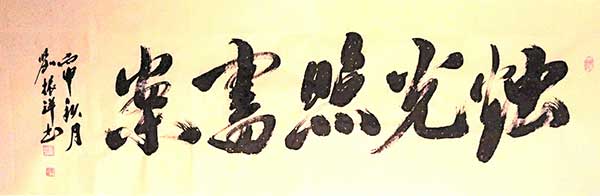 烛光照書案
丙申秋月
劉振祥书